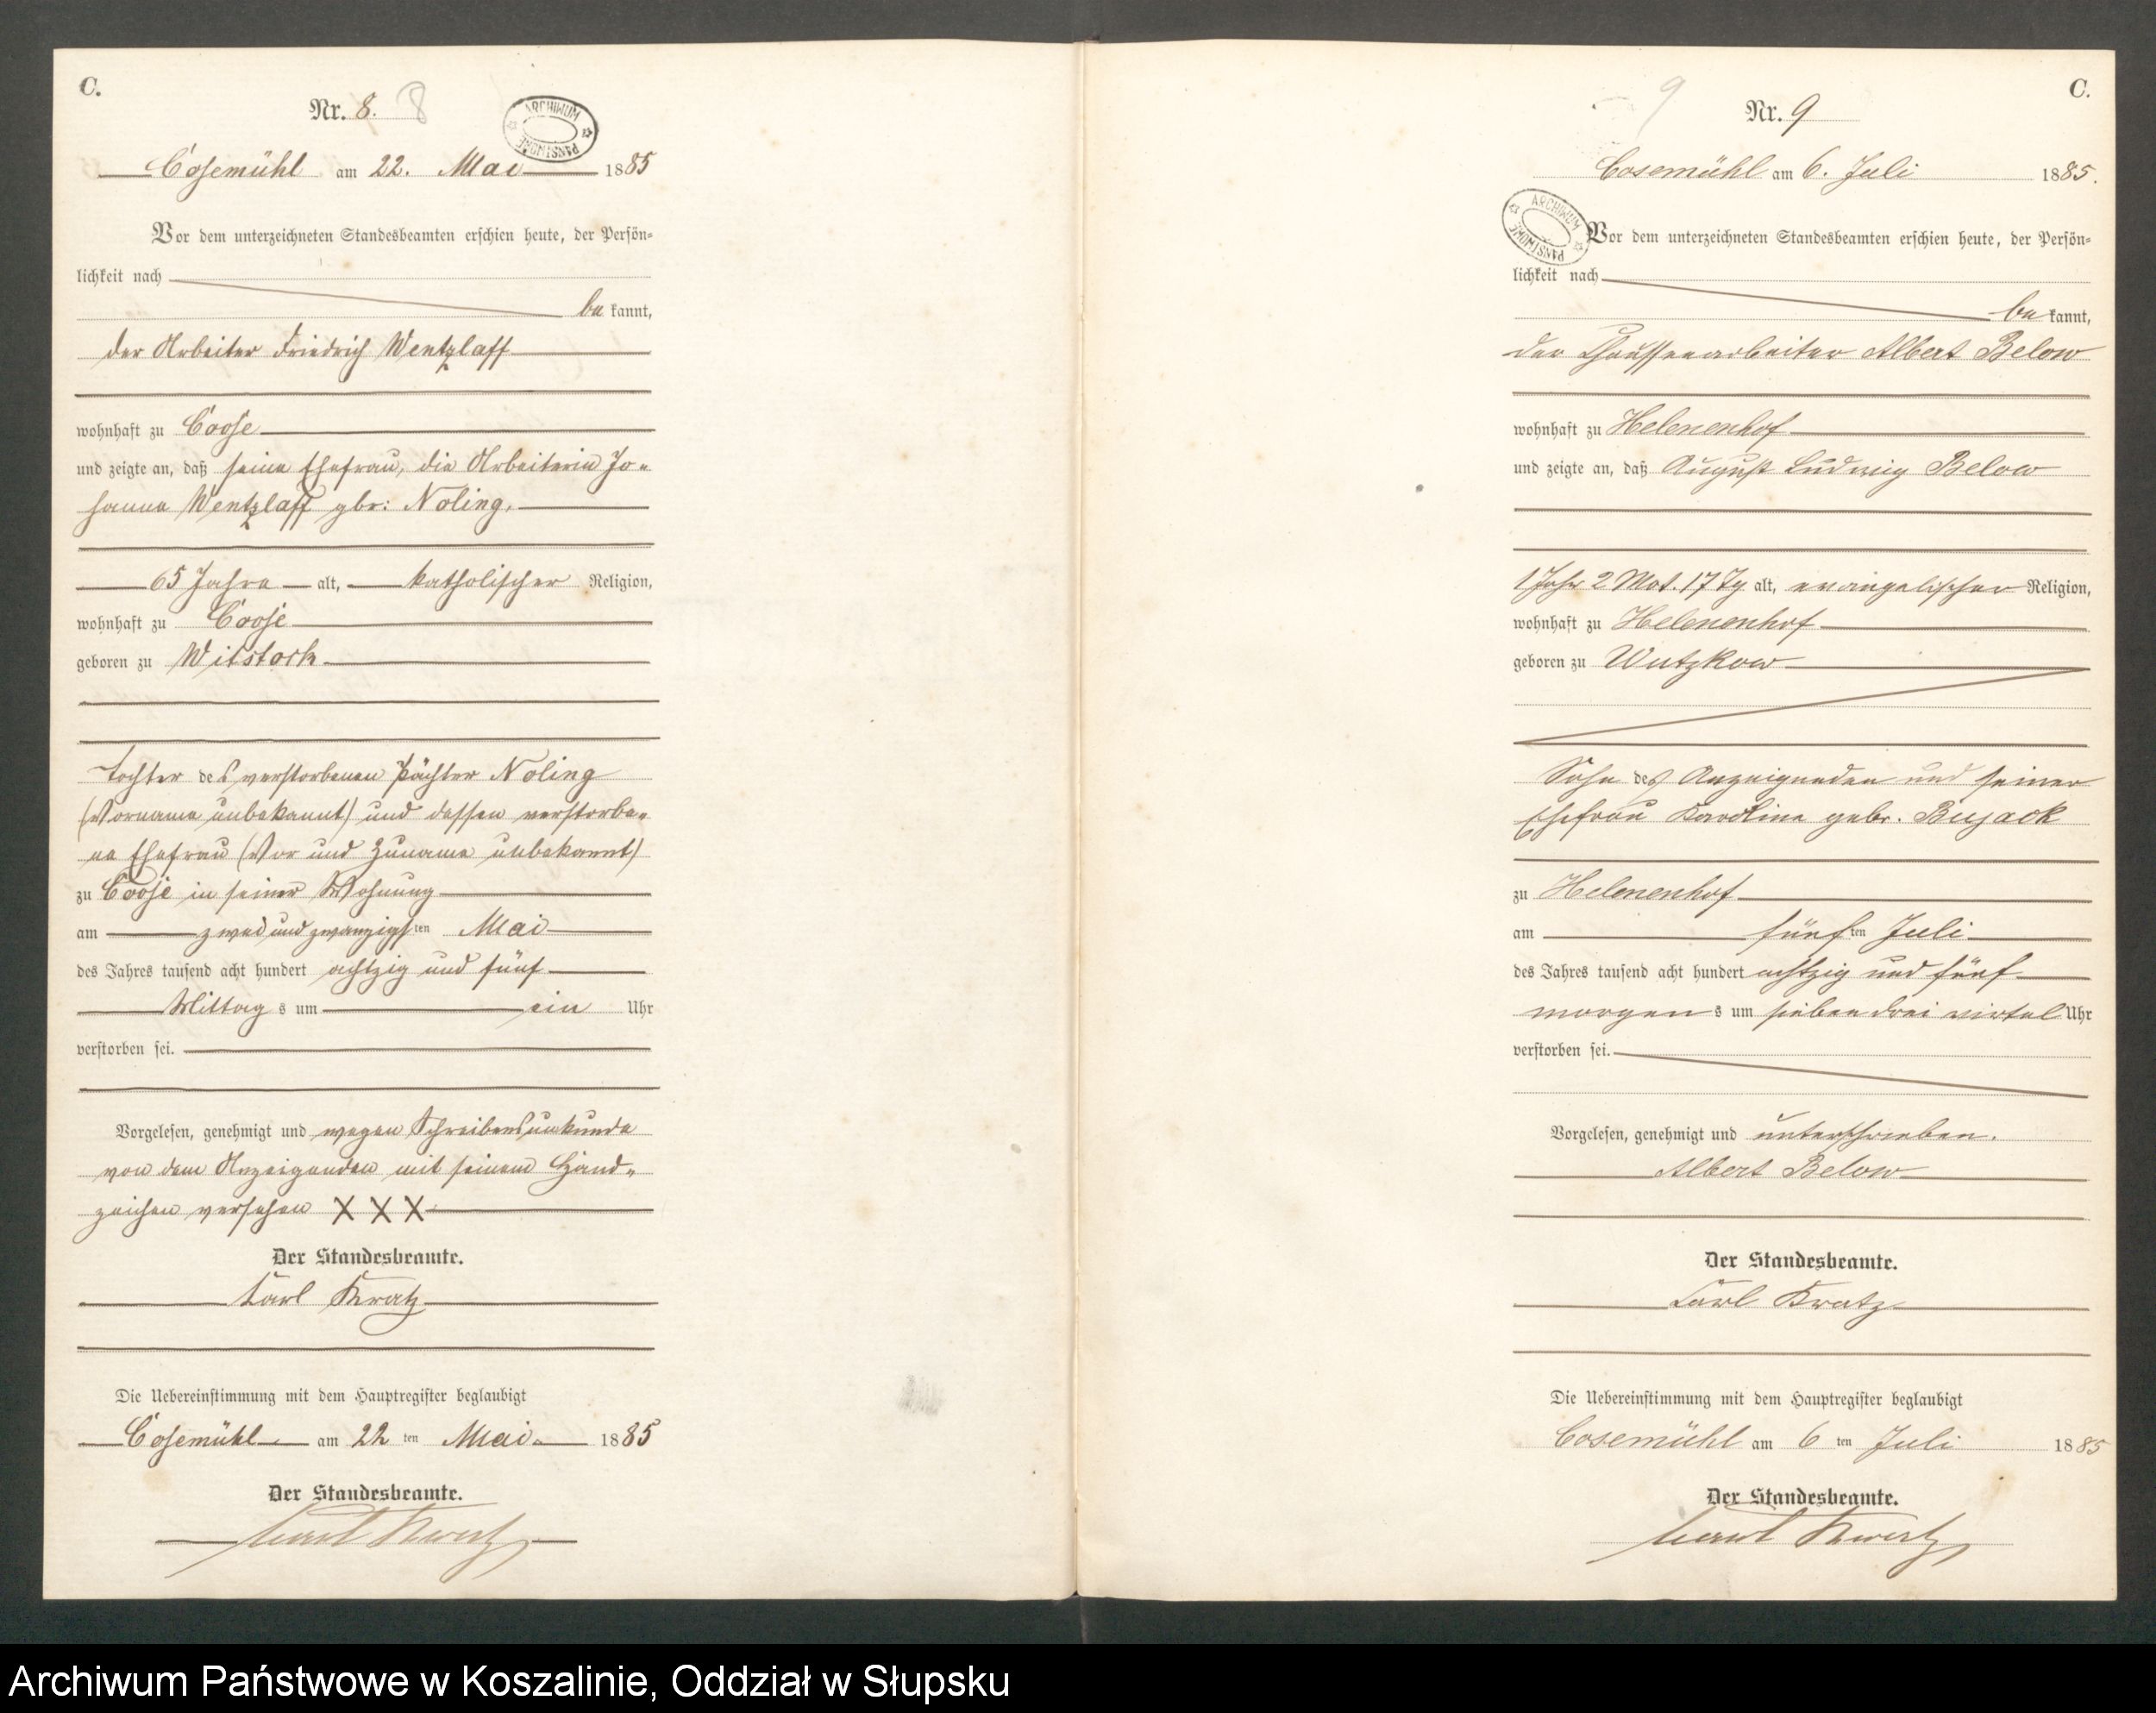 C.
Nr. 8. 8
ARCHIWUM PAŃSTWOWE
Cosemühl am 22. Mai 1885
Vor dem unterzeichneten Standesbeamten erschien heute, der Persön-
lichkeit nach
be kannt,
der Arbeiter Friedrich Wentzlaff
wohnhaft zu Coose
und zeigte an, daß seine Ehefrau, die Arbeiterin Jo-
hanna Wentzlaff gbr: Noling,
65 Jahre alt, katholischer Religion,
wohnhaft zu Coose
geboren zu Witstock
Tochter des verstorbenen Pächter Noling
(Vorname unbekannt) und dessen verstorbe-
ne Ehefrau (Vor und Zuname unbekannt)
zu Coose in seiner Wohnung
am zwei und zwanzigsten Mai
des Jahres tausend acht hundert achtzig und fünf
Mittag s um ein Uhr
verstorben sei.
Vorgelesen, genehmigt und wegen Schreibensunkunde
von dem Anzeigenden mit seinem Hand-
zeichen versehen XXX
Der Standesbeamte.
Carl Kratz
Die Uebereinstimmung mit dem Hauptregister beglaubigt
Cosemühl am 22 ten Mai 1885
Der Standesbeamte.
Carl Kratz
C.
9 Nr. 9
Cosemühl am 6. Juli 1885.
ARCHIWUM PAŃSTWOWE
Vor dem unterzeichneten Standesbeamten erschien heute, der Persön-
lichkeit nach
be kannt,
der Chausseearbeiter Albert Below
wohnhaft zu Helenenhof
und zeigte an, daß August Ludwig Below
1 Jahr 2 Mot. 17 Tg alt, evangelischer Religion,
wohnhaft zu Helenenhof
geboren zu Wutzkow
Sohn des Anzeigenden und seiner
Ehefrau Karoline gebr. Bujack
zu Helenenhof
am fünf ten Juli
des Jahres tausend acht hundert achtzig und fünf
morgen s um sieben drei virtel Uhr
verstorben sei.
Vorgelesen, genehmigt und unterschrieben.
Albert Below
Der Standesbeamte.
Carl Kratz
Die Uebereinstimmung mit dem Hauptregister beglaubigt
Cosemühl am 6 ten Juli 1885
Der Standesbeamte.
Carl Kratz
Archiwum Państwowe w Koszalinie, Oddział w Słupsku